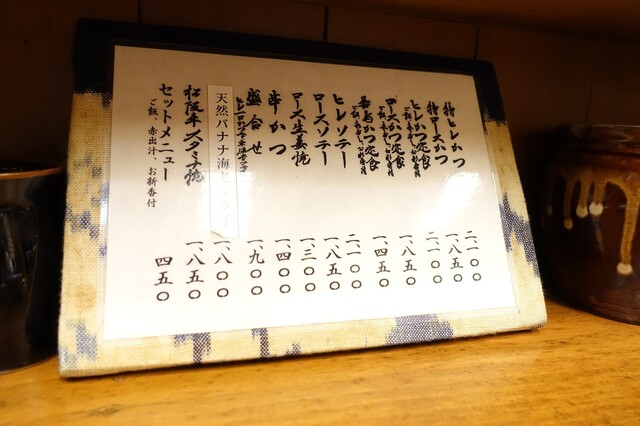 特ヒレかつ 二、一〇〇
特ロースかつ 一、八五〇
ヒレかつ定食 二、一〇〇
ロースかつ定食 一、八五〇
若鳥かつ定食 一、四五〇
ヒレソテー 二、一〇〇
ロースソテー 一、八五〇
ロース生姜焼 一、三〇〇
串かつ 一、四〇〇
盛合せ 一、九〇〇
天然バナナ海老フライ 一、八〇〇
松阪牛スタミナ焼 一、八五〇
セットメニュー 四五〇
ご飯、赤出汁、お新香付